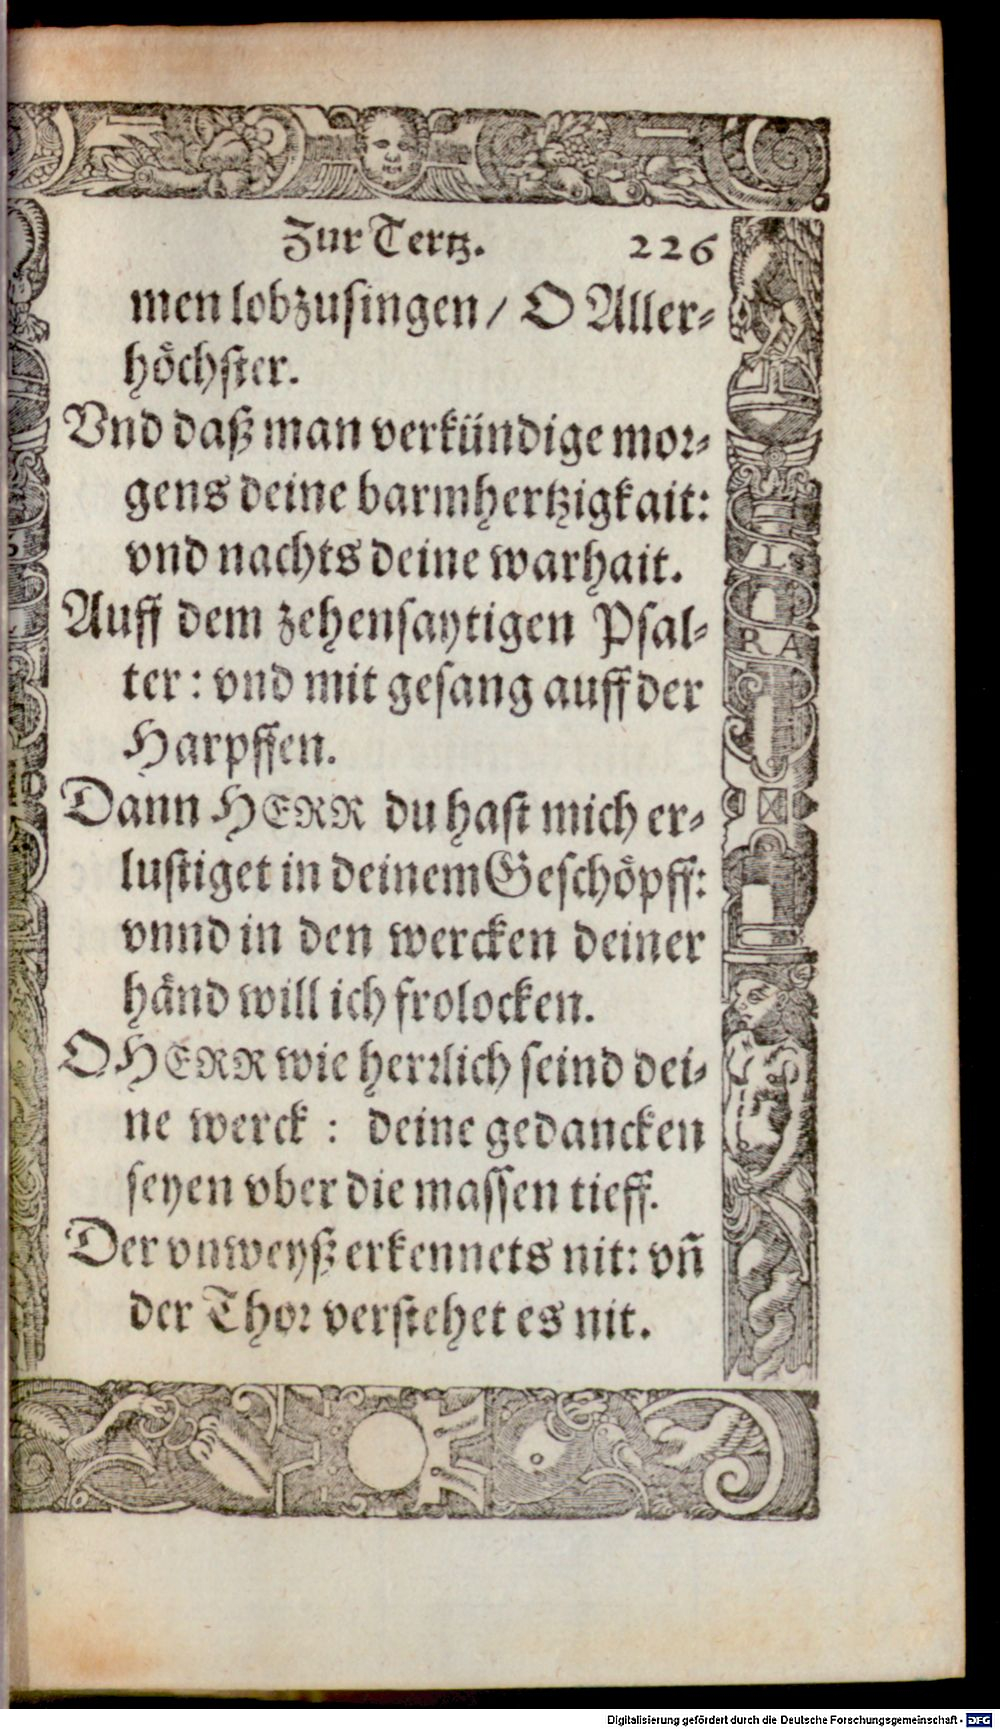 Zur Tertz. 226
men lobzusingen / O Aller⸗
höchster.
Vnd daß man verkündige mor⸗
gens deine barmhertzigkait:
vnd nachts deine warhait.
Auff dem zehensaytigen Psal⸗
ter: vnd mit gesang auff der
Harpffen.
Dann HERR du hast mich er⸗
lustiget in deinem Geschöpff:
vnnd in den wercken deiner
händ will ich frolocken.
O HERR wie herrlich seind dei⸗
ne werck : deine gedancken
seyen vber die massen tieff.
Der vnweyß erkennets nit: vñ
der Thor verstehet es nit.
L
R A
Digitalisierung gefördert durch die Deutsche Forschungsgemeinschaft - DFG